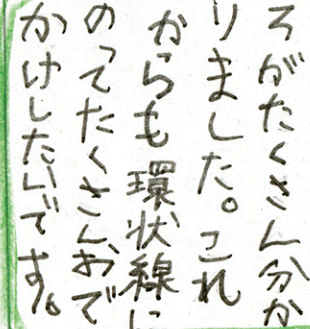 ろがたくさん分か
りました。これ
からも環状線に
のってたくさんおで
かけしたいです。